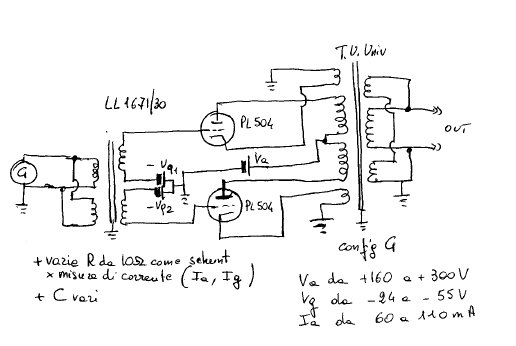 T.U. Univ
LL1671/30
PL504
OUT
- Vg1
Va
G
- Vg2
PL504
config G
+ varie R da 10Ω come schunt
x misura di corrente (Ia, Ig)
+ C vari
Va da +160 a +300V
Vg da -24 a -55V
Ia da 60 a 110 mA